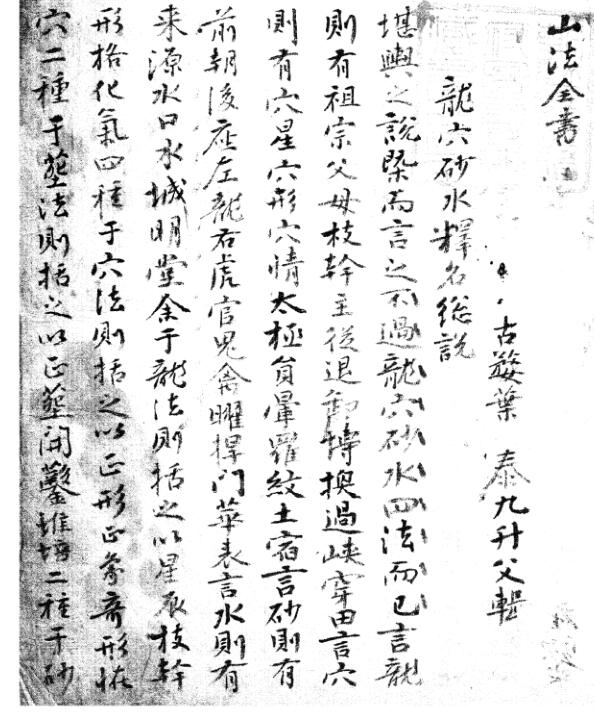 山法全書
古婺葉 泰九升父輯
龍穴砂水釋名総說
堪輿之說槩而言之不過龍穴砂水四法而已言龍
則有祖宗父母枝幹主從退卸博換過峽穿田言穴
則有穴星穴形穴情太極貟暈羅紋土宿言砂則有
前朝後座左龍右虎官鬼禽曜捍門華表言水則有
来源水口水城明堂余于龍法則括之以星辰枝幹
形格化氣四種于穴法則括之以正形正象竒形恠
穴二種于塟法則括之以正塟開鑿堆培二種于砂